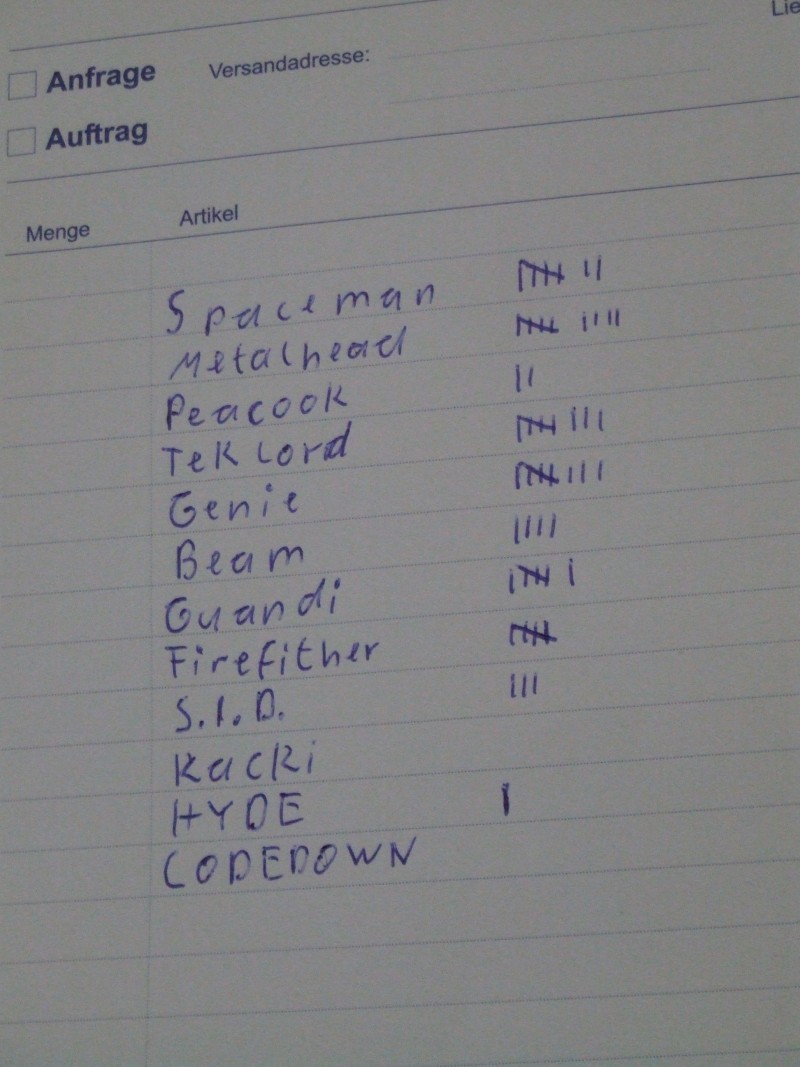 Lie
Anfrage Versandadresse:
Auftrag
Menge Artikel
Spaceman 𝍸 ||
Metalhead 𝍸 ||||
Peacook ||
Teklord 𝍸 |||
Genie 𝍸 |||
Beam ||||
Guandi 𝍸 |
Firefither 𝍸
S.I.D. |||
Kacki
HYDE |
CODEDOWN